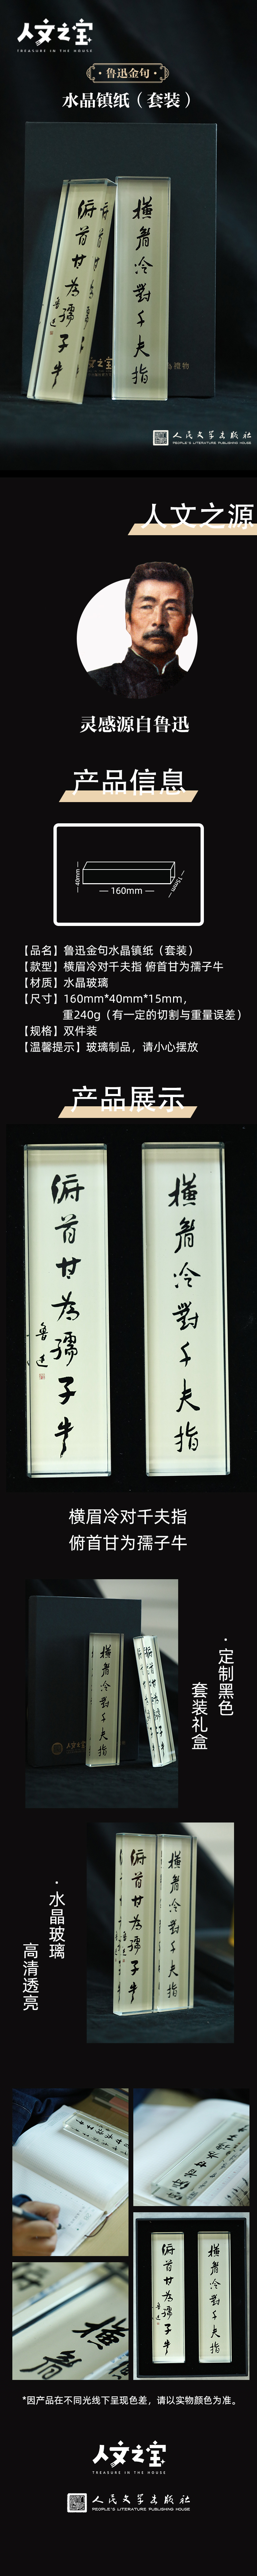 人文之宝
TREASURE IN THE HOUSE
·鲁迅金句·
水晶镇纸（套装）
俯首甘为孺子牛
鲁迅
橫眉冷對千夫指
人民文学出版社
PEOPLE'S LITERATURE PUBLISHING HOUSE
人文之源
灵感源自鲁迅
产品信息
40mm
160mm
15mm
【品名】鲁迅金句水晶镇纸（套装）
【款型】横眉冷对千夫指 俯首甘为孺子牛
【材质】水晶玻璃
【尺寸】160mm*40mm*15mm，
重240g（有一定的切割与重量误差）
【规格】双件装
【温馨提示】玻璃制品，请小心摆放
产品展示
俯首甘为孺子牛
鲁迅
橫眉冷對千夫指
横眉冷对千夫指
俯首甘为孺子牛
橫眉冷對千夫指
人文之宝
·定制黑色
套装礼盒
俯首甘为孺子牛
橫眉冷對千夫指
·水晶玻璃
高清透亮
橫眉
俯首甘为孺子牛
橫眉冷對千夫指
*因产品在不同光线下呈现色差，请以实物颜色为准。
人文之宝
TREASURE IN THE HOUSE
人民文学出版社
PEOPLE'S LITERATURE PUBLISHING HOUSE